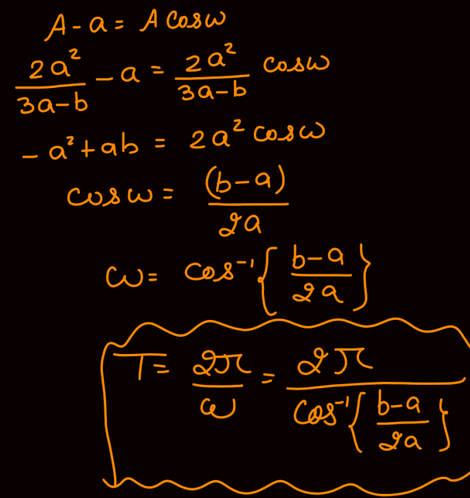 A-a = A cosω
2a²/(3a-b) - a = 2a²/(3a-b) cosω
-a²+ab = 2a² cosω
cosω = (b-a)/2a
ω = cos⁻¹{(b-a)/2a}
T = 2π/ω = 2π/cos⁻¹{(b-a)/2a}